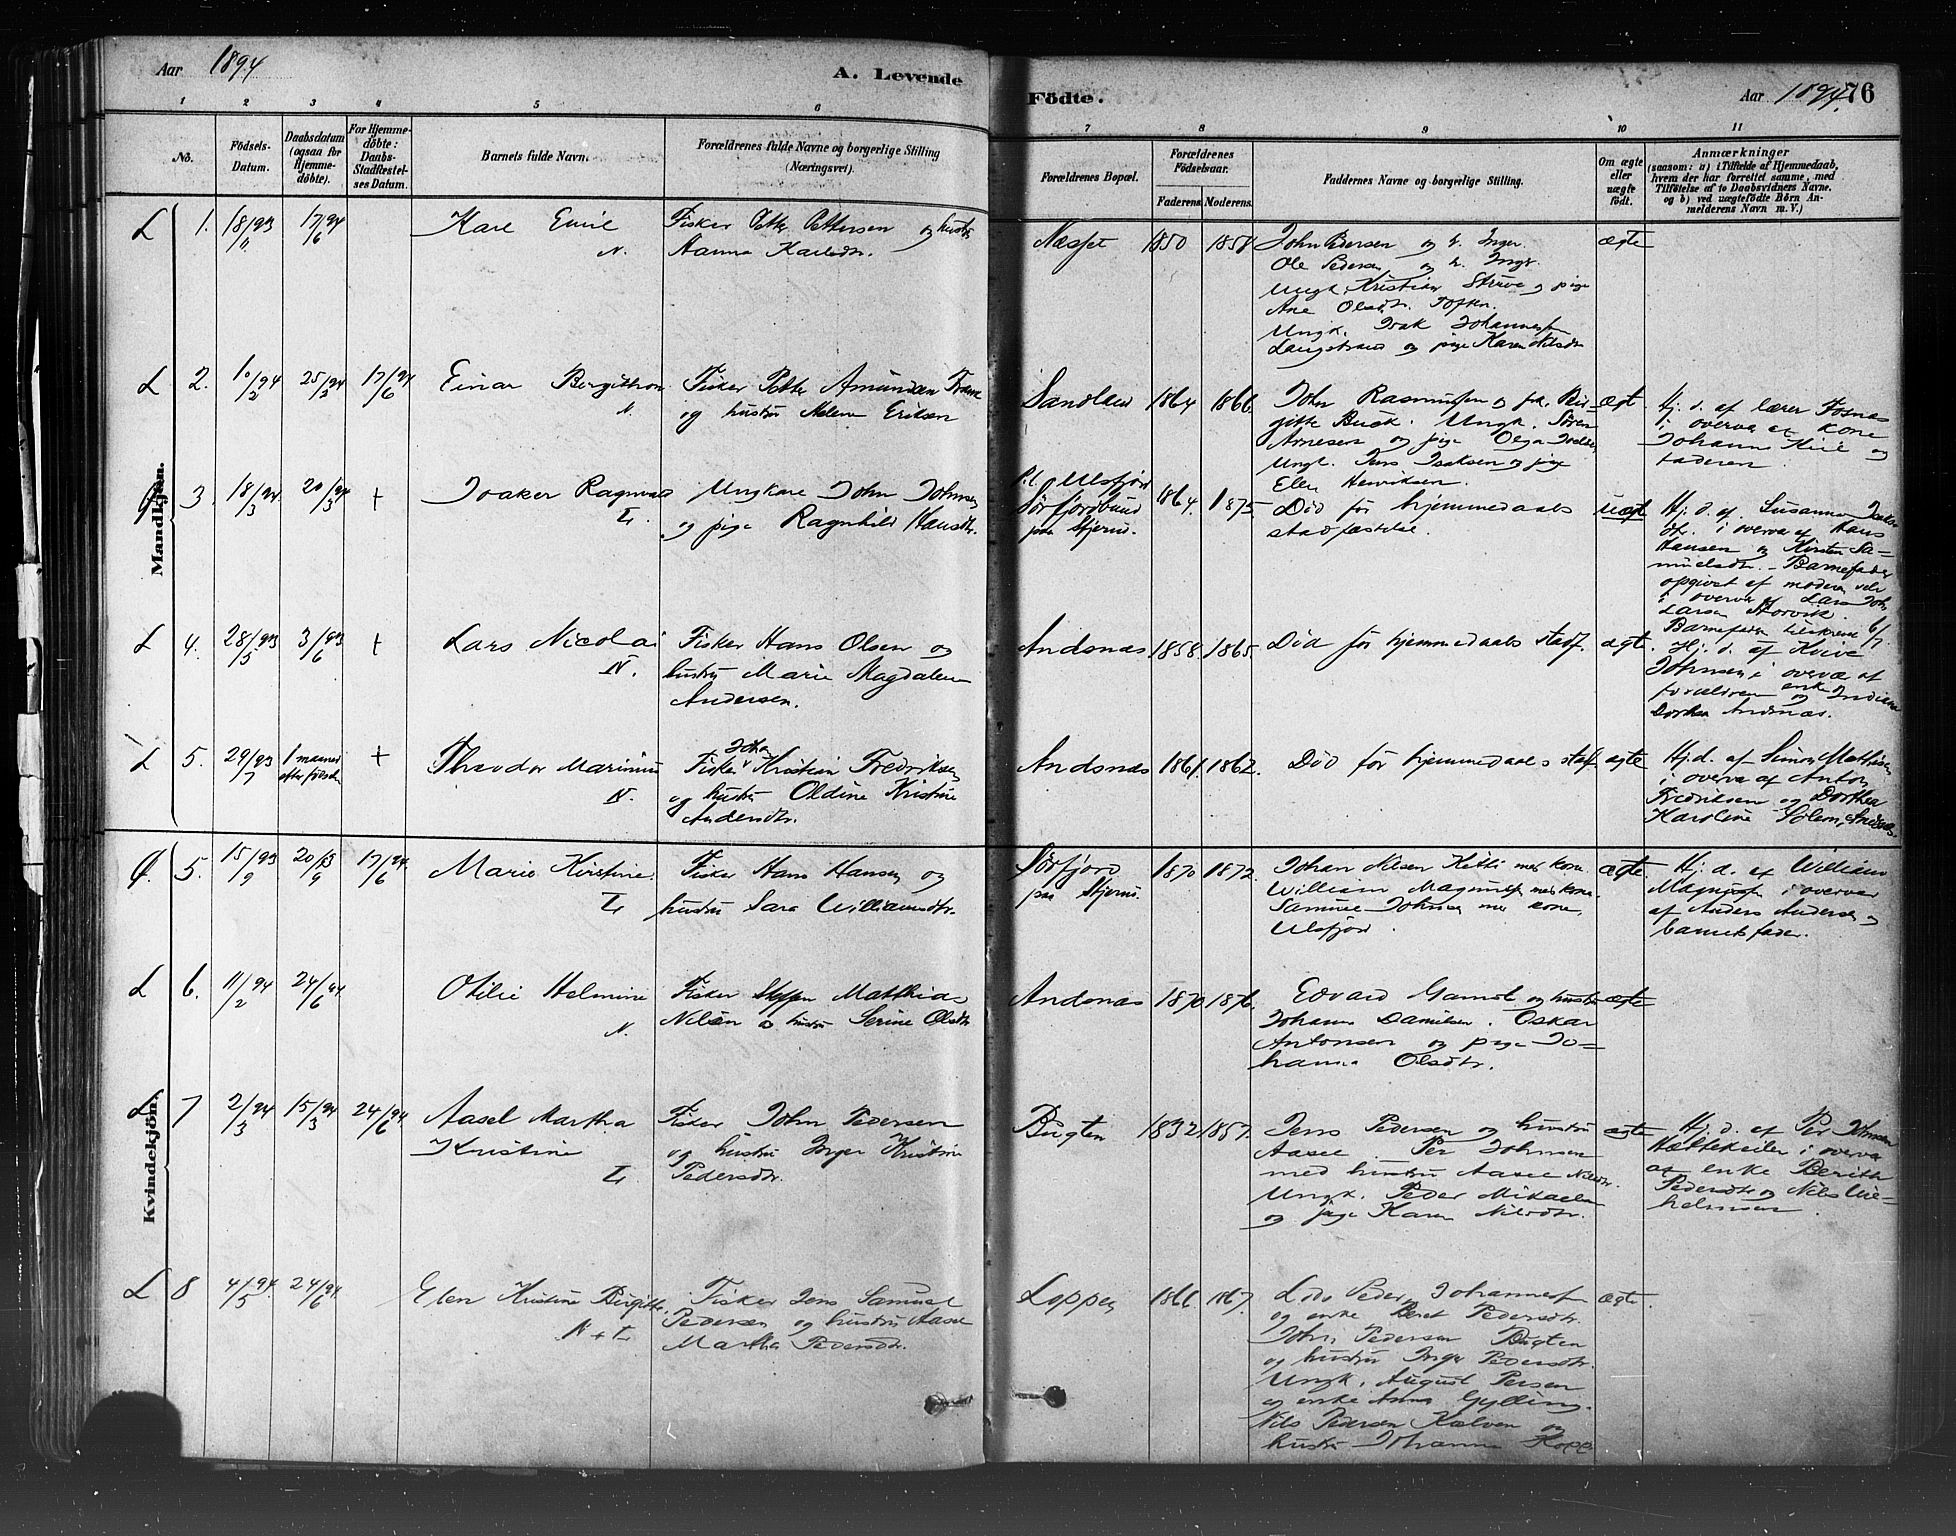 Aar 1894
A. Levende
Födte.
Aar 1894. 76
1 2 3 4 5 6 7 8 9 10 11
No.
Födsels-
Datum.
Daabsdatum
(ogsaa for
Hjemme-
döbte).
For Hjemme-
döbte:
Daabs-
Stadfæstel-
ses Datum.
Barnets fulde Navn.
Forældrenes fulde Navne og borgerlige Stilling
(Næringsvei).
Forældrenes Bopæl.
Forældrenes
Födselsaar.
Faderens. Moderens.
Faddernes Navne og borgerlige Stilling.
Om ægte
eller
uægte
født.
Anmærkninger
(saasom: a) i Tilfælde af Hjemmedaab,
hvem der har forrettet samme, med
Tilföielse af to Daabsvidners Navne,
og b) ved uægtefödte Börn An-
melderens Navn m. V.)
Mandkjön.
L 1. 18/93 17/94 6
Karl Emil
N.
Fisker Petter Pettersen og hustru
Hanna Karlsdtr.
Næsset 1850 1854
John Pedersen og h. Inger
Ole Pedersen og h. Inger
Ungk. Kristian Struve og pige
Ane Olsdtr.
Ungk. Isak Johannesen
Langstrand og pige Karen Nilsdtr
ægte
L 2. 10/94 2 25/94 3 17/94 6
Einar Birgitton
N.
Fisker Petter Amundsen
og hustru Helene Eriksen
Sandland 1864 1866
John Rasmussen og fr. Bir-
gitte Buck. Ungk. Sören
Arnesen og pige Olga
Ungk. Jens Isaksen og pige
Elen Henriksen.
ægt.
Hj. d. af lærer Fosnæs
i overvær af kone
Johanna og
faderen.
3. 18/94 3 20/94 3 +
Joakor Ragnvald
L.
Ungkarl John Johnsen
og pige Ragnhild Hansdtr.
Ulsfjord
Sörfjordbund
paa Stjernö.
1864. 1875.
Död för hjemmedaabs
stadfæstelse.
uægte
Hj. d. af Susanna Isaks
dtr. i overvær af Hans
Hansen og Kirsten Sa-
muelsdtr. - Barnefader
opgivet af moderen selv
i overvær af Lars Joh.
Larsen Storvik.
L 4. 28/93 5 3/93 6 +
Lars Nicolai
N.
Fisker Hans Olsen og
hustru Marie Magdalene
Andersen.
Andsnæs 1858. 1865.
Död för hjemmedaabs stadf.
ægte.
Hj. d. af
Johnsen i overvær af
forældrene og enke
Dorthea Andsnæs.
L 5. 29/93 7 1 maaned
efter födselen +
Theodor Marinius
N.
Fisker Johan Kristian Fredriksen
og hustru Oldine Kristine
Andersdtr.
Andsnæs 1861. 1862.
Död för hjemmedaabs stadf
ægte
Hj. d. af Simon Mathisen
i overvær af Anton
Fredriksen og Dorthea
Karoline Solem, Andsnæs.
Kvindekjön.
5. 15/93 9 20/93 9 17/94 6
Marie Kirstine.
L.
Fisker Hans Hansen og
hustru Sara Williamsdtr.
Sörfjord
paa Stjernö.
1870 1872.
Johan Nilsen Kitti med kone.
William Magnusen med kone.
Samuel Johnsen med kone,
Ulsfjord.
ægte
Hj. d. af William
Magnusen i overvær
af Anders Andersen og
barnets fader.
L 6. 11/94 2 24/94 6
Otilie Helmine
N.
Fisker Steffen Matthias
Nilsen og hustru Serine Olsdtr
Andsnæs 1870 1876.
Edvard Gamst og hustru
Johanna Danielsen. Oskar
Antonsen og pige Jo-
hanna Olsdtr.
ægte
L 7 2/94 3 15/94 3 24/94 6
Aasel Martha
Kristine
L.
Fisker John Pedersen
og hustru Inger Kristine
Pedersdtr.
Bugten 1832 1857.
Jens Pedersen og hustru
Aasel. Per Johnsen
med hustru Aasel Nilsdtr.
Ungk. Peder Mikaelsen
og pige Karen Nilsdtr.
ægte
Hj. d. af Per Johnsen
i overvær
af enke Berith
Pedersdtr og Nils Vil-
helmsen.
L 8 4/94 5 24/94 6
Elen Kristine Birgitte.
N + L
Fisker Jens Samuel
Pedersen og hustru Aasel
Martha Pedersdtr.
Loppen 1866 1867.
Peder Johannesen
og enke Beret Pedersdtr.
John Pedersen Bugten
og hustru Inger Pedersdtr.
Ungk. August Persen
og enke Anna Gylling.
Nils Pedersen Kalven og
hustru Johanna
ægte.